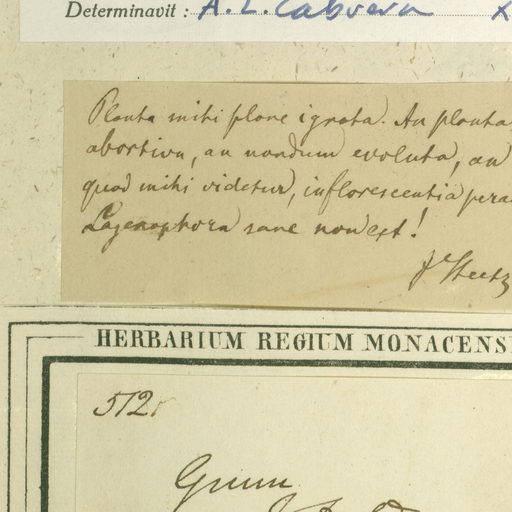 Determinavit : A. L. Cabrera X
Planta mihi plane ignota. An planta
abortiva, an nondum evoluta, an
quod mihi videtur, inflorescentia pera
Lagenophora sane non est!
Steetz
HERBARIUM REGIUM MONACENS
512